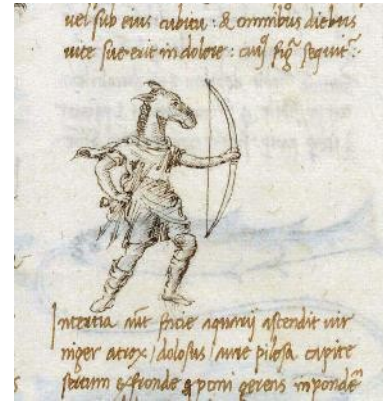 vel sub eius cubitu : & omnibus diebus
vite sue erit in dolore : cuiꝯ fig̃ sequit᷑ :
Intertia aũt facie aquarij ascendit uir
niger atrox / dolosus / aure pilosa capite
sertum ex fronde & pomi gerens